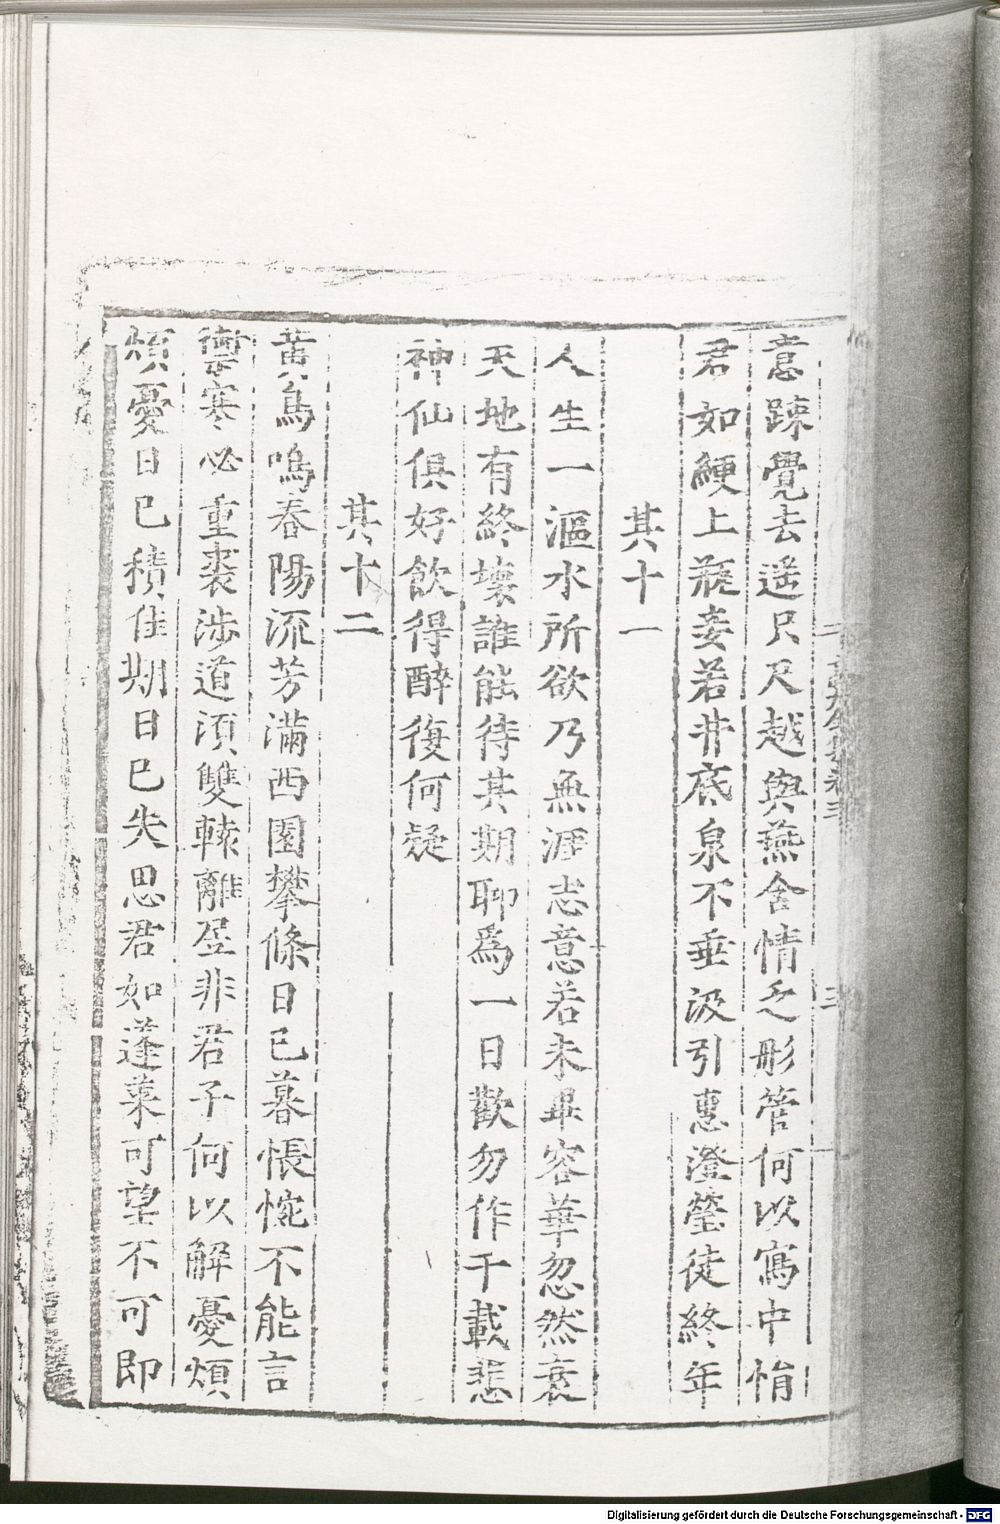 意踈覺去遥只尺越與燕含情乏彤管何以寫中悁
君如綆上瓶妾若井底泉不垂汲引惠澄瑩徒終年
其十一
人生一漚水所欲乃無涯志意若未畢容華忽然衰
天地有終壞誰能待其期聊爲一日歡勿作千載悲
神仙俱好飲得醉復何疑
其十二
黃鳥鳴春陽流芳滿西園攀條日已暮悵惋不能言
禦寒必重裘涉道須雙轅離居非君子何以解憂煩
煩憂日已積佳期日已失思君如蓬萊可望不可即
Digitalisierung gefördert durch die Deutsche Forschungsgemeinschaft - DFG